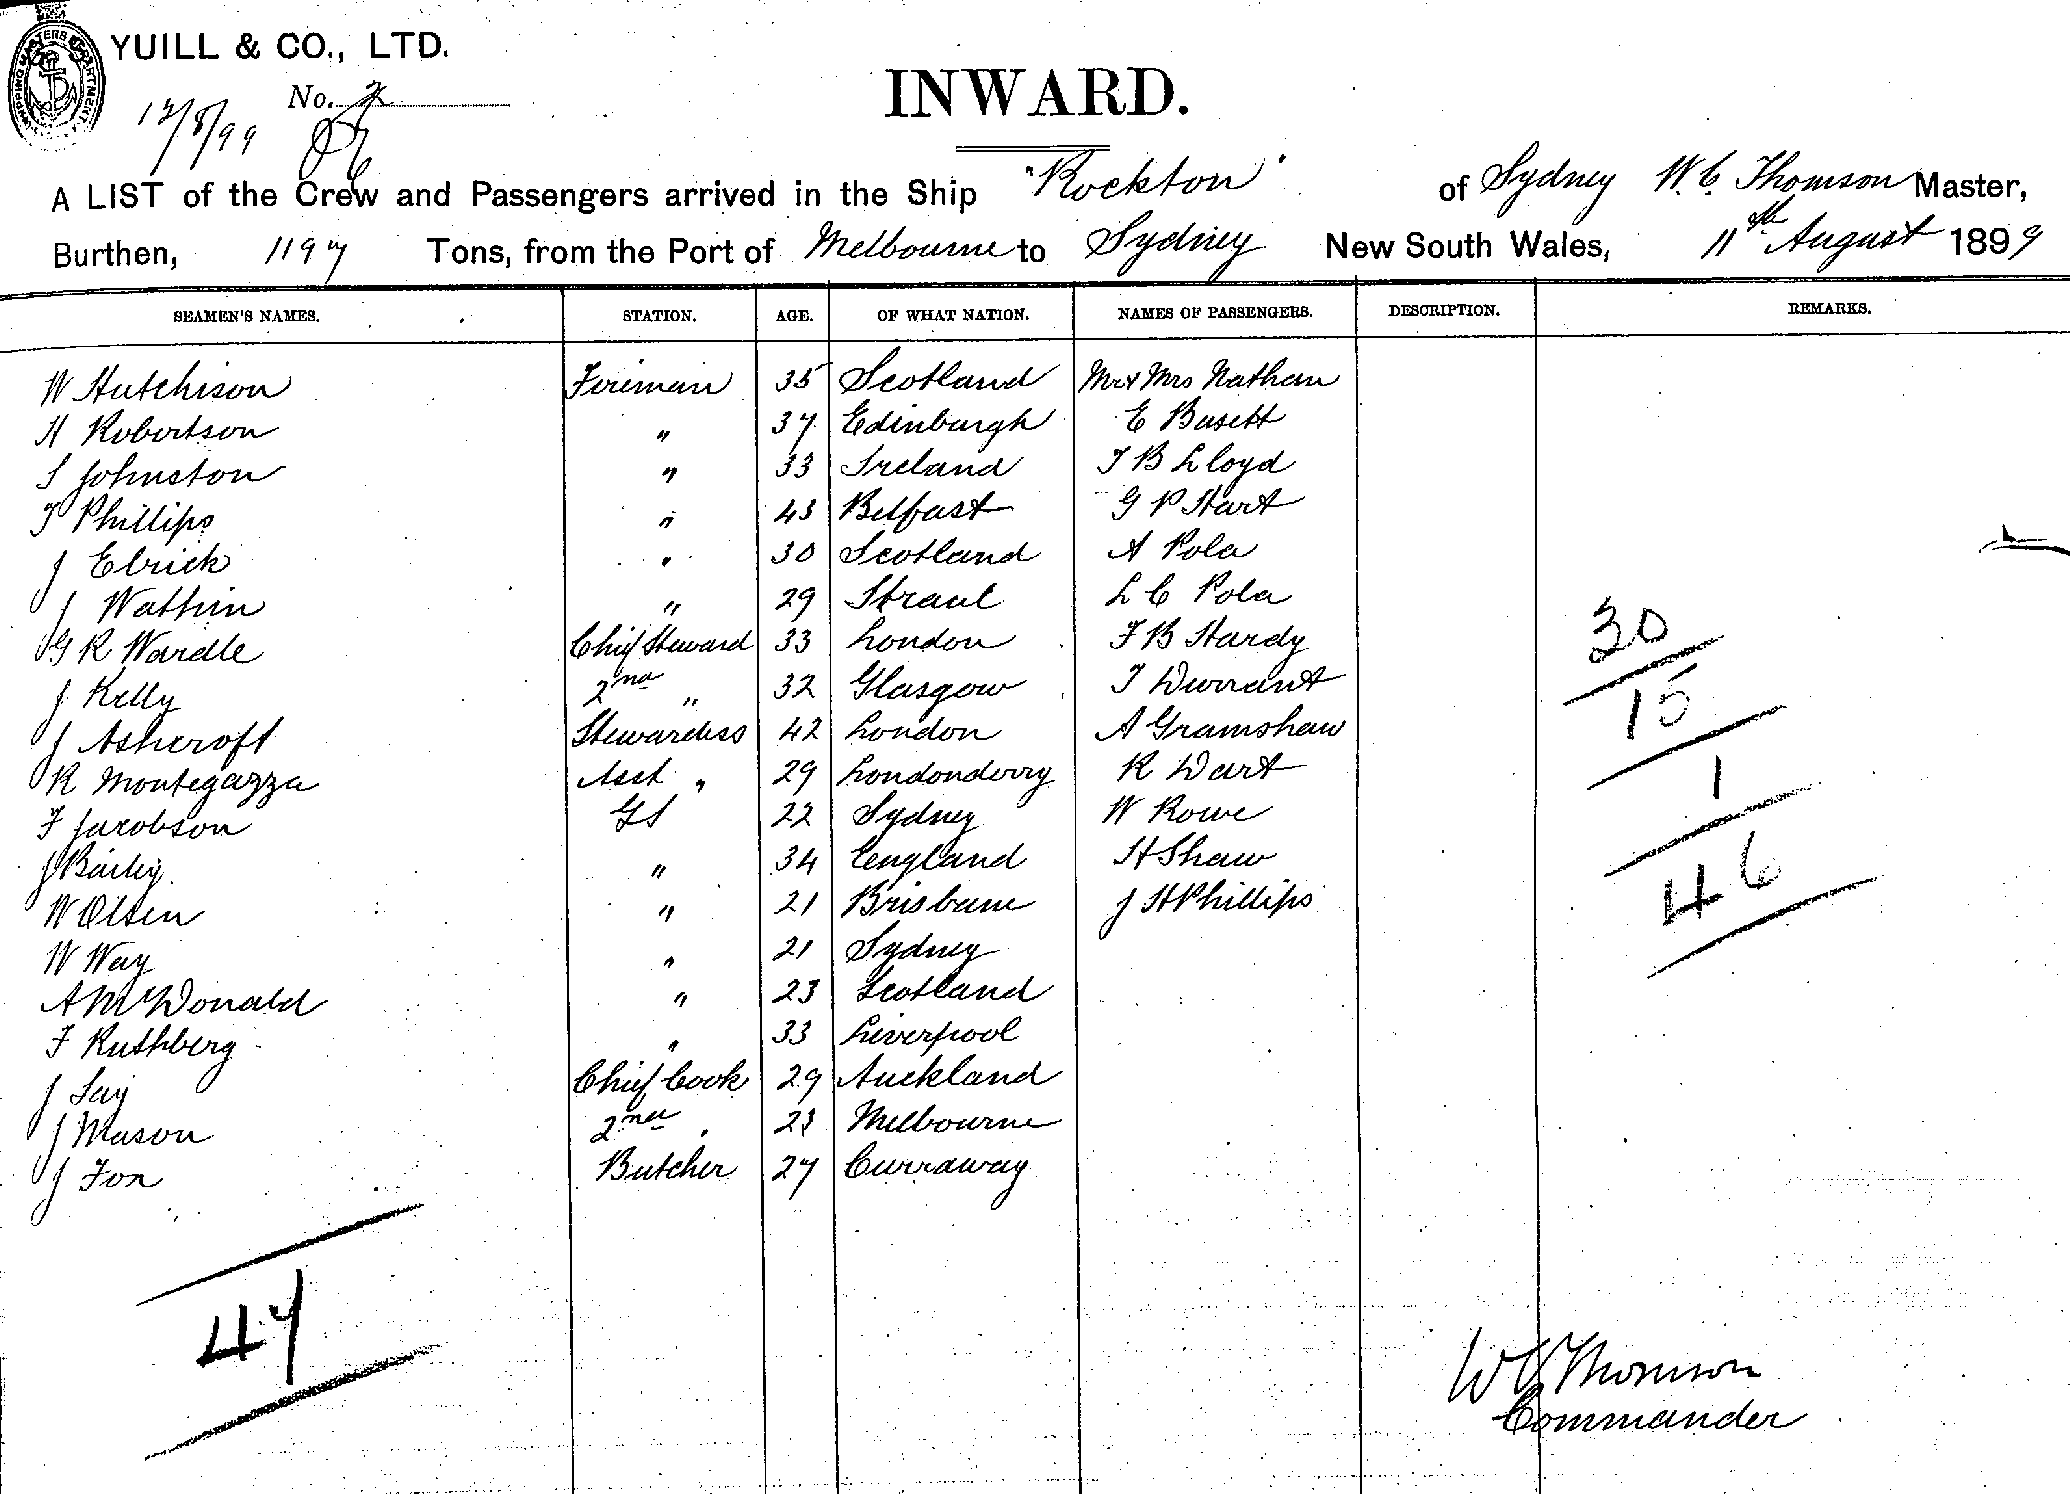 YUILL & CO., LTD.
No. 2
12/8/99
INWARD.
A LIST of the Crew and Passengers arrived in the Ship "Rockton" of Sydney W. C. Thomson Master,
Burthen, 1197 Tons, from the Port of Melbourne to Sydney New South Wales, 11th August 1899
SEAMEN'S NAMES. STATION. AGE. OF WHAT NATION. NAMES OF PASSENGERS. DESCRIPTION. REMARKS.
W Hutchison Fireman 35 Scotland Mr & Mrs Nathan
H Robertson " 37 Edinburgh E Basett
S Johnston " 33 Ireland T B Lloyd
T Phillips " 43 Belfast G P Hart
J Elrick " 30 Scotland A Pola
J " 29 L C Pola
G R Wardle Chief Steward 33 London F B Hardy
J Kelly 2nd " 32 Glasgow T Durrant
J Ashcroft Stewardess 42 London A Gramshaw
R Montegazza Asst " 29 Londonderry R Dart
F Jacobson GS 22 Sydney W Rowe
J Bailey " 34 England H Shaw
W Olsen " 21 Brisbane J H Phillips
W Way " 21 Sydney
A McDonald " 23 Scotland
F Ruthberg " 33 Liverpool
J Chief Cook 29 Auckland
J Mason 2nd " 23 Melbourne
J Fox Butcher 27 Curraway
30
15
1
46
47
W C Thomson
Commander